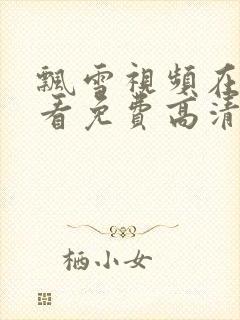 飄雪視頻在
看免費高清
栖小女